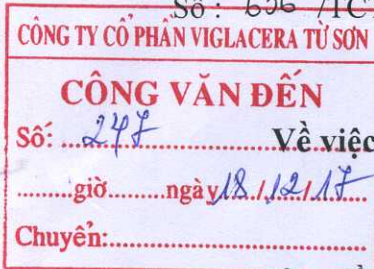 Số: 636 /TCT
CÔNG TY CỔ PHẦN VIGLACERA TỪ SƠN
CÔNG VĂN ĐẾN
Số: ...247............Về việc
........giờ........ngày 18/12/17...
Chuyển:...................................